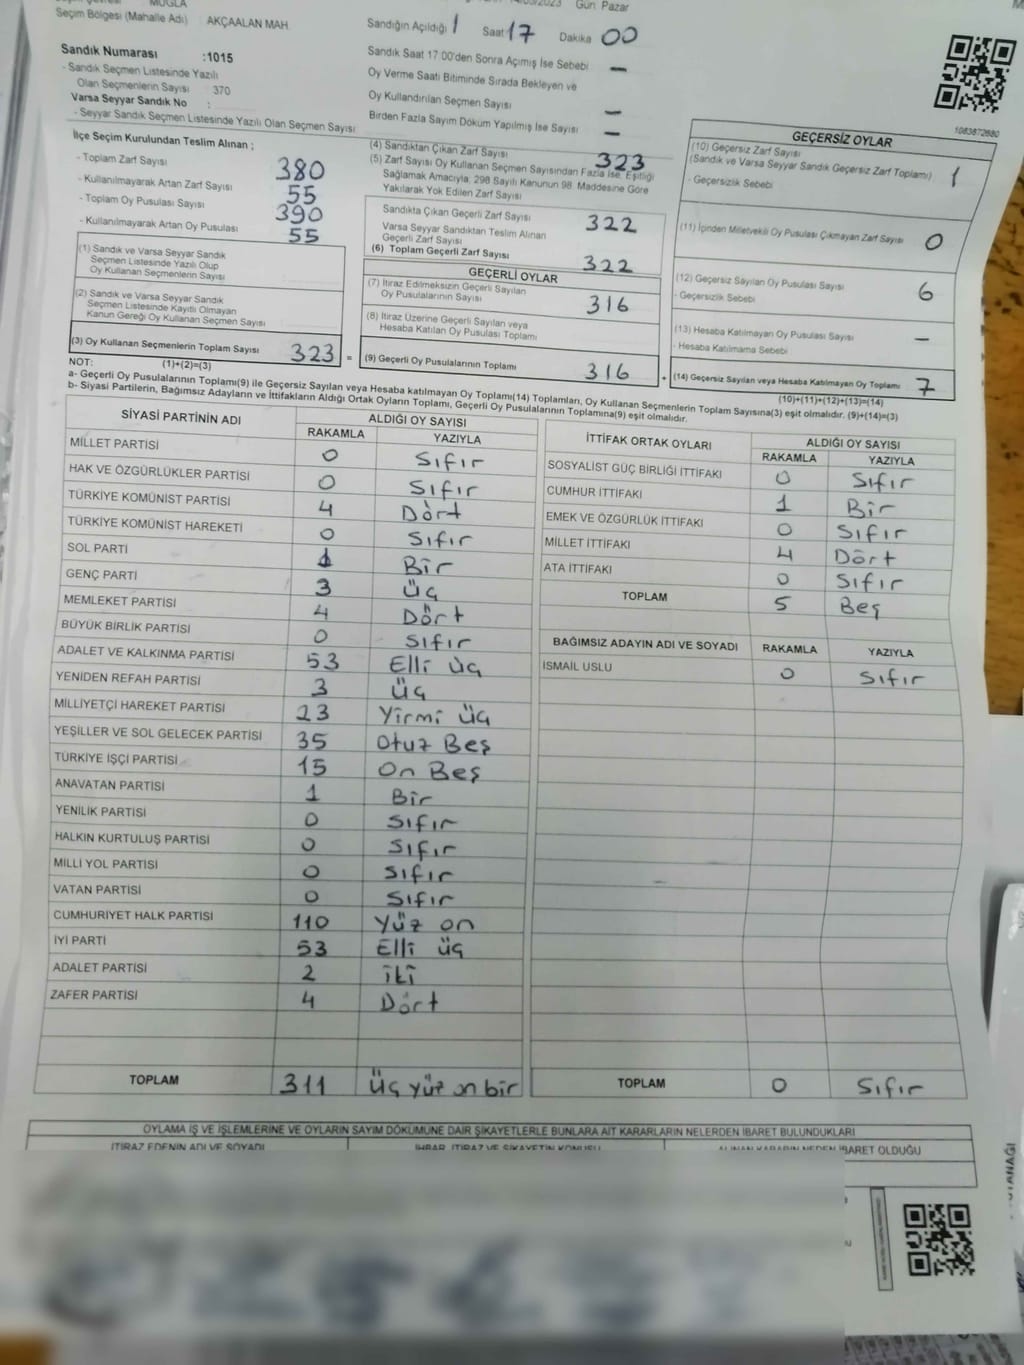 MUĞLA
Gün Pazar
Seçim Bölgesi (Mahalle Adı) AKÇAALAN MAH.
Sandığın Açıldığı 1 Saat 17 Dakika 00
Sandık Numarası :1015
- Sandık Seçmen Listesinde Yazılı
Olan Seçmenlerin Sayısı 370
Varsa Seyyar Sandık No :
- Seyyar Sandık Seçmen Listesinde Yazılı Olan Seçmen Sayısı
Sandık Saat 17:00'den Sonra Açımış İse Sebebi —
Oy Verme Saati Bitiminde Sırada Bekleyen ve
Oy Kullandırılan Seçmen Sayısı —
Birden Fazla Sayım Döküm Yapılmış İse Sayısı —
1083872680
İlçe Seçim Kurulundan Teslim Alınan ;
- Toplam Zarf Sayısı 380
- Kullanılmayarak Artan Zarf Sayısı 55
- Toplam Oy Pusulası Sayısı 390
- Kullanılmayarak Artan Oy Pusulası 55
(1) Sandık ve Varsa Seyyar Sandık
Seçmen Listesinde Yazılı Olup
Oy Kullanan Seçmenlerin Sayısı
(2) Sandık ve Varsa Seyyar Sandık
Seçmen Listesinde Kayıtlı Olmayan
Kanun Gereği Oy Kullanan Seçmen Sayısı
(3) Oy Kullanan Seçmenlerin Toplam Sayısı 323 =
(4) Sandıktan Çıkan Zarf Sayısı 323
(5) Zarf Sayısı Oy Kullanan Seçmen Sayısından Fazla İse, Eşitliği
Sağlamak Amacıyla, 298 Sayılı Kanunun 98. Maddesine Göre
Yakılarak Yok Edilen Zarf Sayısı
Sandıkta Çıkan Geçerli Zarf Sayısı 322
Varsa Seyyar Sandıktan Teslim Alınan
Geçerli Zarf Sayısı
(6) Toplam Geçerli Zarf Sayısı 322
GEÇERLİ OYLAR
(7) İtiraz Edilmeksizin Geçerli Sayılan
Oy Pusulalarının Sayısı 316
(8) İtiraz Üzerine Geçerli Sayılan veya
Hesaba Katılan Oy Pusulası Toplamı
(9) Geçerli Oy Pusulalarının Toplamı 316 +
GEÇERSİZ OYLAR
(10) Geçersiz Zarf Sayısı
(Sandık ve Varsa Seyyar Sandık Geçersiz Zarf Toplamı) 1
- Geçersizlik Sebebi
(11) İçinden Milletvekili Oy Pusulası Çıkmayan Zarf Sayısı 0
(12) Geçersiz Sayılan Oy Pusulası Sayısı 6
- Geçersizlik Sebebi
(13) Hesaba Katılmayan Oy Pusulası Sayısı —
- Hesaba Katılmama Sebebi
(14) Geçersiz Sayılan veya Hesaba Katılmayan Oy Toplamı 7
NOT: (1)+(2)=(3)
(10)+(11)+(12)+(13)=(14)
a- Geçerli Oy Pusulalarının Toplamı(9) ile Geçersiz Sayılan veya Hesaba katılmayan Oy Toplamı(14) Toplamları, Oy Kullanan Seçmenlerin Toplam Sayısına(3) eşit olmalıdır. (9)+(14)=(3)
b- Siyasi Partilerin, Bağımsız Adayların ve İttifakların Aldığı Ortak Oyların Toplamı, Geçerli Oy Pusulalarının Toplamına(9) eşit olmalıdır.
SİYASİ PARTİNİN ADI ALDIĞI OY SAYISI
RAKAMLA YAZIYLA
MİLLET PARTİSİ 0 Sıfır
HAK VE ÖZGÜRLÜKLER PARTİSİ 0 Sıfır
TÜRKİYE KOMÜNİST PARTİSİ 4 Dört
TÜRKİYE KOMÜNİST HAREKETİ 0 Sıfır
SOL PARTİ 1 Bir
GENÇ PARTİ 3 üç
MEMLEKET PARTİSİ 4 Dört
BÜYÜK BİRLİK PARTİSİ 0 Sıfır
ADALET VE KALKINMA PARTİSİ 53 Elli üç
YENİDEN REFAH PARTİSİ 3 üç
MİLLİYETÇİ HAREKET PARTİSİ 23 Yirmi üç
YEŞİLLER VE SOL GELECEK PARTİSİ 35 Otuz Beş
TÜRKİYE İŞÇİ PARTİSİ 15 On Beş
ANAVATAN PARTİSİ 1 Bir
YENİLİK PARTİSİ 0 Sıfır
HALKIN KURTULUŞ PARTİSİ 0 Sıfır
MİLLİ YOL PARTİSİ 0 Sıfır
VATAN PARTİSİ 0 Sıfır
CUMHURİYET HALK PARTİSİ 110 Yüz on
İYİ PARTİ 53 Elli üç
ADALET PARTİSİ 2 iki
ZAFER PARTİSİ 4 Dört
TOPLAM 311 üç yüz on bir
İTTİFAK ORTAK OYLARI ALDIĞI OY SAYISI
RAKAMLA YAZIYLA
SOSYALİST GÜÇ BİRLİĞİ İTTİFAKI 0 Sıfır
CUMHUR İTTİFAKI 1 Bir
EMEK VE ÖZGÜRLÜK İTTİFAKI 0 Sıfır
MİLLET İTTİFAKI 4 Dört
ATA İTTİFAKI 0 Sıfır
TOPLAM 5 Beş
BAĞIMSIZ ADAYIN ADI VE SOYADI RAKAMLA YAZIYLA
İSMAİL USLU 0 Sıfır
TOPLAM 0 Sıfır
OYLAMA İŞ VE İŞLEMLERİNE VE OYLARIN SAYIM DÖKÜMÜNE DAİR ŞİKAYETLERLE BUNLARA AİT KARARLARIN NELERDEN İBARET BULUNDUKLARI
İTİRAZ EDENİN ADI VE SOYADI İHBAR, İTİRAZ VE ŞİKAYETİN KONUSU ALINAN KARARIN NEDEN İBARET OLDUĞU